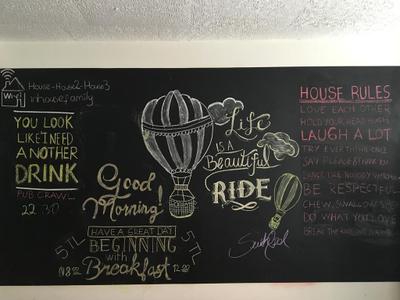 House-House2-House3
inhousefamily
YOU LOOK
LIKE I NEED
ANOTHER
DRINK
PUB CRAWL
22:30
Good
Morning!
HAVE A GREAT DAY
BEGINNING
with
Breakfast
5TL
5TL
Life
IS A
Beautiful
RIDE
HOUSE RULES
LOVE EACH OTHER
HOLD YOUR HEAD HIGH
LAUGH A LOT
TRY EVERYTHING ONCE
SAY PLEASE & THANK YOU
DANCE LIKE NOBODY WATCHING
BE RESPECTFUL
CHEW, SWALLOW,
DO WHAT YOU LOVE
BREAK THE RULES